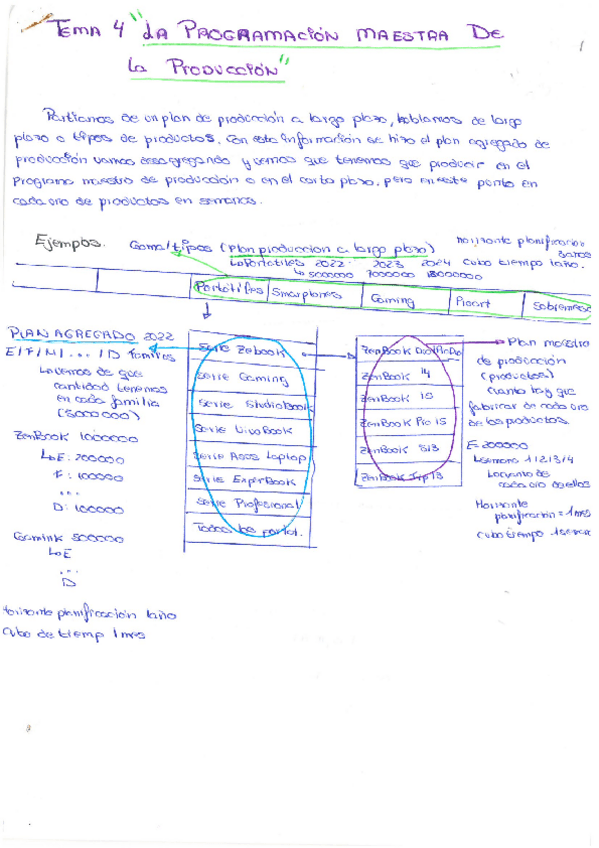 Tema 4 "La Programación Maestra De
la Producción"
Partiamos de un plan de producción a largo plazo, hablamos de largo
plazo o tipos de productos. Con esta información se hizo el plan agregado de
producción vamos desagregando y vemos que tenemos que producir en el
Programa maestro de producción o en el corto plazo, pero en este punto en
cada uno de productos en semanas.
Ejemplos. Gama/tipos (Plan produccion a largo plazo)
horizonte planificacion
3 anos
Portatiles 2022 2023 2024 Cubo tiempo 1 año.
5000000 7000000
Portátiles Smarphones Gaming Sobremesa
PLAN AGREGADO 2022
E/F/M/.../D Familias
La vemos de que
cantidad tenemos
en cada familia
(5000000)
ZenBook 1000000
E: 200000
F: 100000
...
D: 100000
500000
E
...
D
Horizonte planificación 1 año
Cubo de tiemp 1 mes
Serie Zebook
Serie Gaming
Serie StudioBook
Serie VivoBook
Serie Asus Laptop
Serie ExpertBook
Serie Profesional
ZenBook
ZenBook 14
ZenBook 15
ZenBook Pro 15
ZenBook S13
ZenBook
Plan maestro
de producción
(productos)
Cuanto hay que
fabricar de cada uno
de los productos.
E=200000
Semana 1/2/3/4
cada uno de ellos
Horizonte
planificación = 1 mes
Cubo tiempo